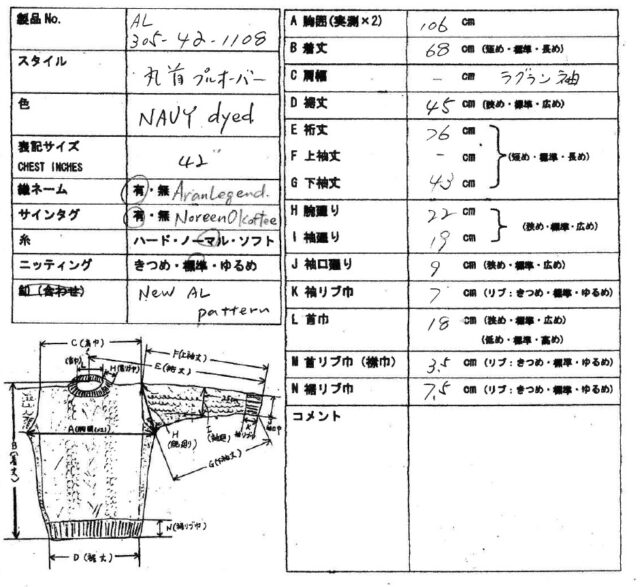 製品No.
AL
305-42-1108
スタイル
丸首プルオーバー
色
NAVY dyed
表記サイズ
CHEST INCHES
42"
織ネーム
有・無 AranLegend.
サインタグ
有・無 Noreen O'Kaffee
糸
ハード・ノーマル・ソフト
ニッティング
きつめ・標準・ゆるめ
釦(合わせ)
New AL
pattern
A 胸囲(実測×2) 106 cm
B 着丈 68 cm (短め・標準・長め)
C 肩幅 - cm ラグラン袖
D 裾丈 45 cm (狭め・標準・広め)
E 裄丈 76 cm
F 上袖丈 - cm (短め・標準・長め)
G 下袖丈 43 cm
H 腕廻り 22 cm
(狭め・標準・広め)
I 袖廻り 19 cm
J 袖口廻り 9 cm (狭め・標準・広め)
K 袖リブ巾 7 cm (リブ:きつめ・標準・ゆるめ)
L 首巾 18 cm (狭め・標準・広め)
(低め・標準・高め)
M 首リブ巾(襟巾) 3.5 cm (リブ:きつめ・標準・ゆるめ)
N 裾リブ巾 7.5 cm (リブ:きつめ・標準・ゆるめ)
コメント
C(肩巾)
F(上袖丈)
E(裄丈)
A(胸囲(×2))
B(着丈)
H
(腕廻り)
G(下袖丈)
K
N(裾リブ巾)
D(裾丈)